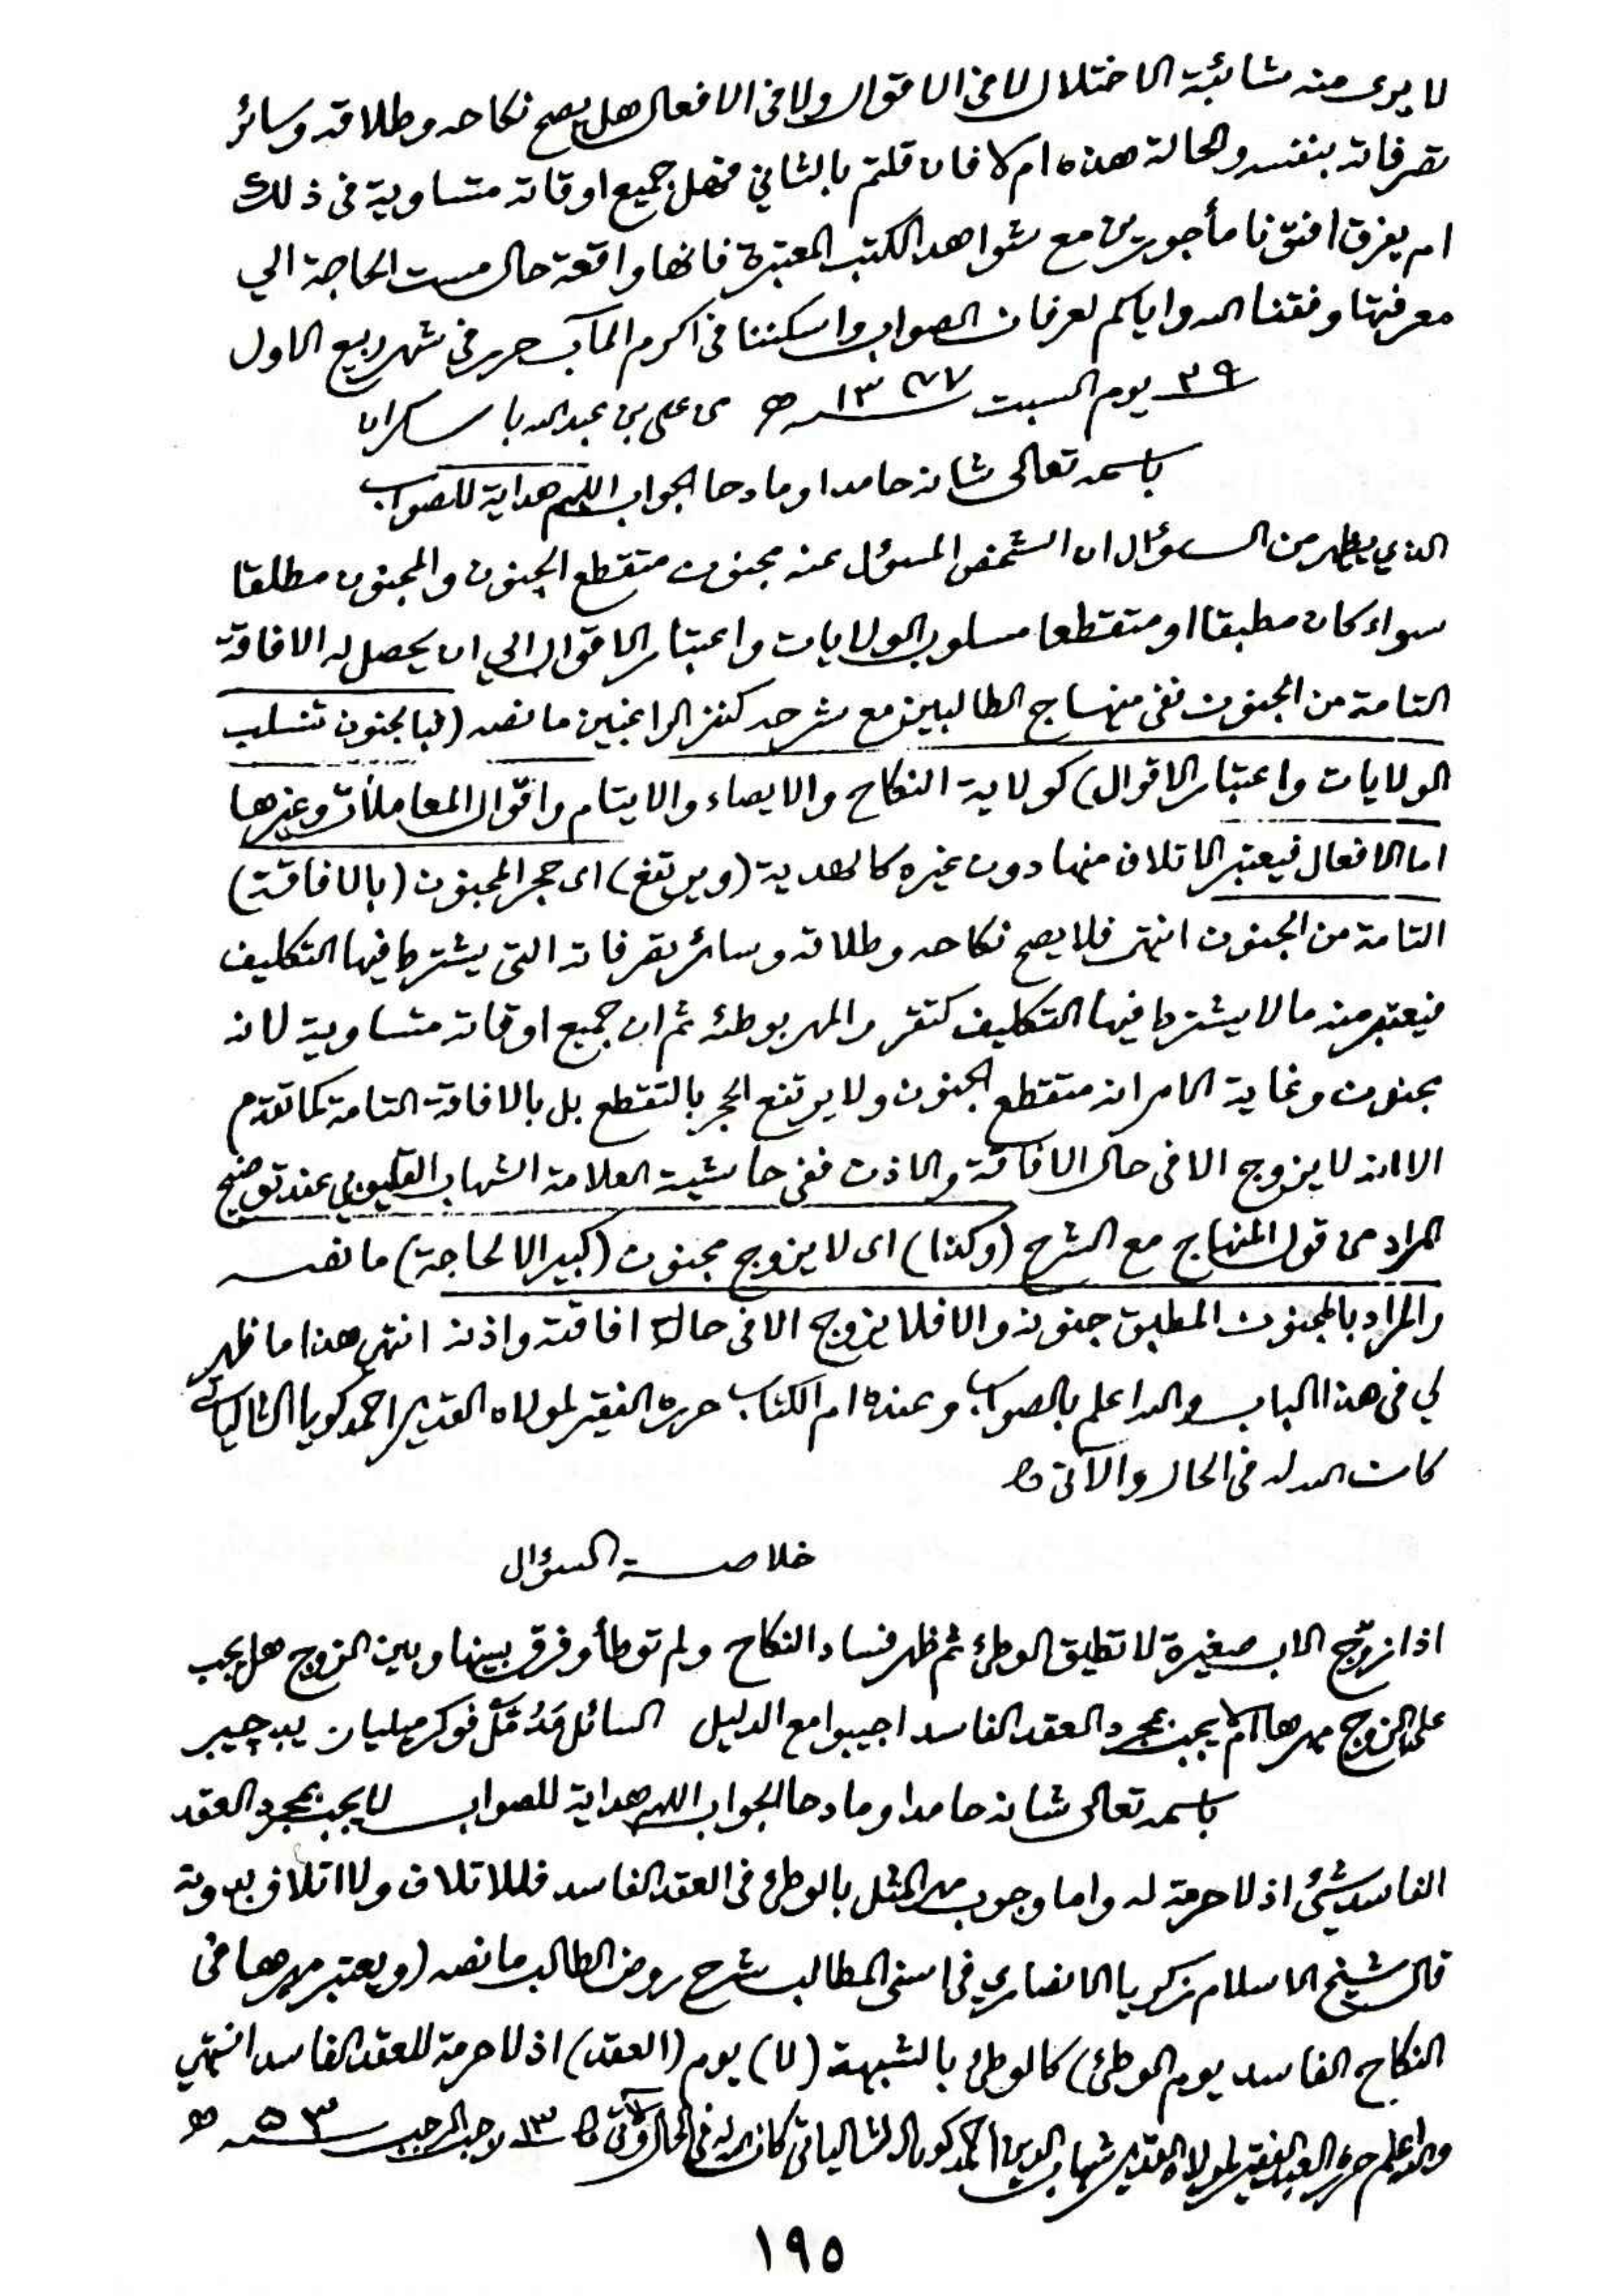 لا يرى منه شائبة الاختلال لا فى الاقوال ولا فى الافعال هل يصح نكاحه وطلاقه وسائر
تصرفاته بنفسه والحالة هذه ام لا فان قلتم بالثاني فهل جميع اوقاته متساوية فى ذلك
ام يفرق افتونا مأجورين مع شواهد الكتب المعتبرة فانها واقعة حال مست الحاجة الي
معرفتها وفقنا الله واياكم لعرفان الصواب واسكننا فى اكرم المآب حرر فى شهر ربيع الاول
٢٩ يوم السبت ١٣٧٧ ھ من على بن عبد الله با سكران
باسمه تعالى شانه حامدا ومادحا الجواب اللهم هداية للصواب
الذي يظهر من السوؤال ان الشخص المسؤل عنه مجنون متقطع الجنون والمجنون مطلقا
سواء كان مطبقا او متقطعا مسلوب الولايات واعتبار الاقوال الي ان يحصل له الافاقة
التامة من الجنون نفى منهاج الطالبين مع شرحه كنز الراغبين ما نصه (فبالجنون تنسلب
الولايات واعتبار الاقوال) كولاية النكاح والايصاء والايتام واقوال المعاملات وغيرها
اما الافعال فيعتبر الاتلاف منها دون غيره كالهدية (ويرتفع) اى حجر المجنون (بالافاقة)
التامة من الجنون انتهى فلا يصح نكاحه وطلاقه وسائر تصرفاته التى يشترط فيها التكليف
فيعتبر منه ما لا يشترط فيها التكليف كتقرر المهر بوطئه ثم ان جميع اوقاته متساوية لانه
مجنون وغاية الامر انه متقطع الجنون ولا يرتفع الحجر بالتقطع بل بالافاقة التامة كما تقدم
الا انه لا يزوج الا فى حال الافاقة والاذن ففى حاشية العلامة الشهاب القليوبي عند توضيح
المراد من قول المنهاج مع الشرح (وكذا) اى لا يزوج مجنون (كبير الا لحاجة) ما نصه
والمراد بالمجنون المطبق جنونه والا فلا يزوج الا فى حالة افاقته واذنه انتهى هذا ما ظهر
لي فى هذا الباب والله اعلم بالصواب وعنده ام الكتاب حرره الفقير لمولاه القدير احمد كويا الشالياتى
كان الله له فى الحال والآتى
خلاصة السؤال
اذا زوّج الاب صغيرة لا تطيق الوطئ ثم ظهر فساد النكاح ولم توطأ وفرق بينها وبين الزوج هل يجب
على الزوج مهرها ام لا يجب بمجرد العقد الفاسد اجيبوا مع الدليل السائل
باسمه تعالى شانه حامدا ومادحا الجواب اللهم هداية للصواب لا يجب بمجرد العقد
الفاسد شئ اذ لا حرمة له واما وجوب مهر المثل بالوطئ فى العقد الفاسد فللاتلاف ولا اتلاف بدونه
قال شيخ الاسلام زكريا الانصاري فى اسنى المطالب شرح روض الطالب ما نصه (ويعتبر مهرها فى
النكاح الفاسد يوم الوطئ) كالوطئ بالشبهة (لا) يوم (العقد) اذ لا حرمة للعقد الفاسد انتهي
والله اعلم حرره العبد الفقير لمولاه القدير شهاب الدين احمد كويا الشالياتى كان الله له فى الحال والآتى ١٣ رجب المرجب ٥٣ ھ
١٩٥